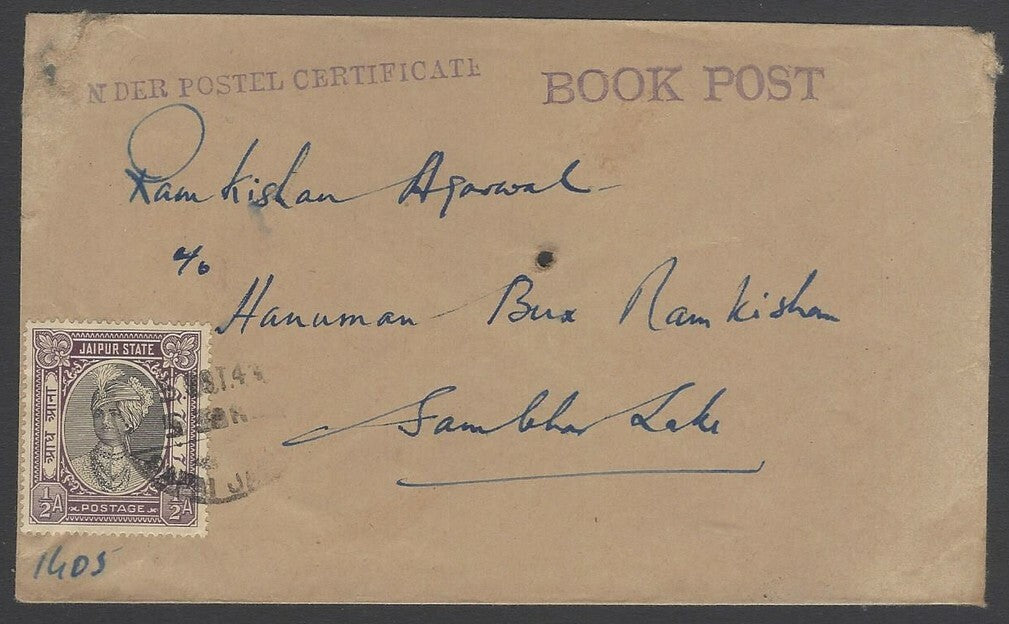 NDER POSTEL CERTIFICATE
BOOK POST
Ram Kishan Agarwal
c/o
Hanuman Bux Ram Kishan
Sambhar Lake
JAIPUR STATE
आध आना
½A POSTAGE ½A
1405